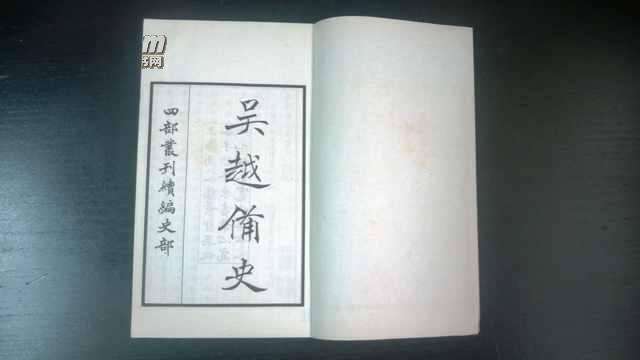 吴越備史
四部叢刊續編史部
网